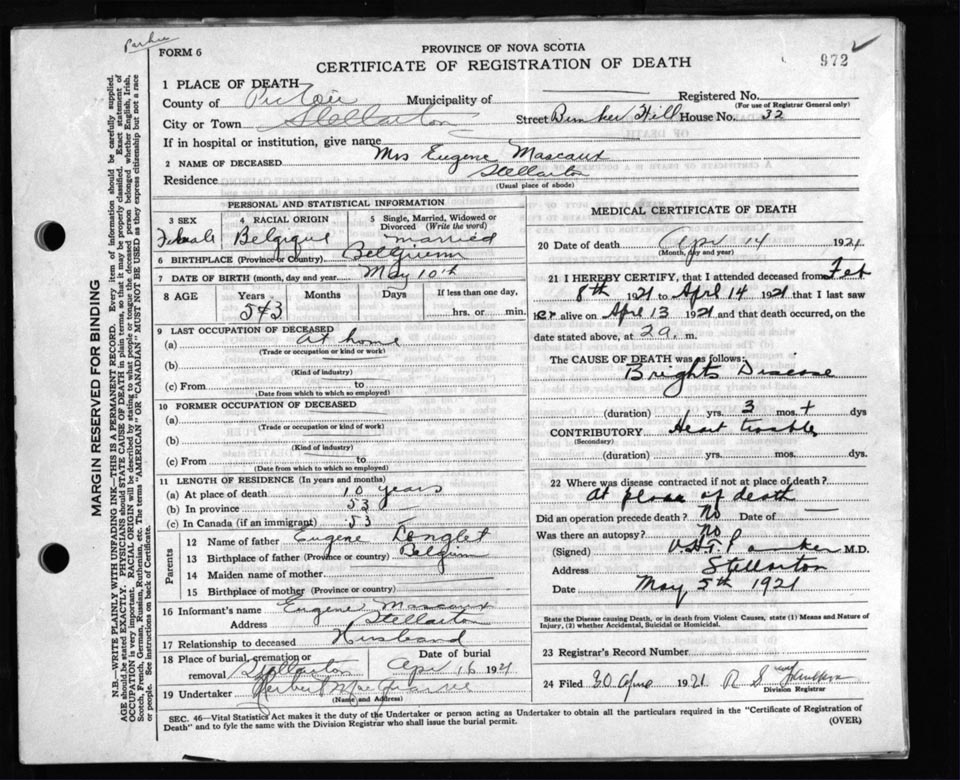 Parker
FORM 6
PROVINCE OF NOVA SCOTIA
CERTIFICATE OF REGISTRATION OF DEATH
972
1 PLACE OF DEATH
County of Pictou Municipality of Registered No.
(For use of Registrar General only)
City or Town Stellarton Street Bunker Hill House No. 32
If in hospital or institution, give name
2 NAME OF DECEASED Mrs Eugene Mascaux
Residence Stellarton
(Usual place of abode)
PERSONAL AND STATISTICAL INFORMATION
3 SEX 4 RACIAL ORIGIN 5 Single, Married, Widowed or Divorced (Write the word)
Female Belgique married
6 BIRTHPLACE (Province or Country) Belguim
7 DATE OF BIRTH (month, day and year) May 10th
8 AGE Years Months Days If less than one day,
53 hrs. or min.
9 LAST OCCUPATION OF DECEASED
(a) At home
(Trade or occupation or kind or work)
(b)
(Kind of industry)
(c) From to
(Date from which to which so employed)
10 FORMER OCCUPATION OF DECEASED
(a)
(Trade or occupation or kind of work)
(b)
(Kind of industry)
(c) From to
(Date from which to which so employed)
11 LENGTH OF RESIDENCE (In years and months)
(a) At place of death 10 years
(b) In province 53
(c) In Canada (if an immigrant) 53
Parents
12 Name of father Eugene Longlet
13 Birthplace of father (Province or country) Belgium
14 Maiden name of mother
15 Birthplace of mother (Province or country)
16 Informant's name Eugene Mascaux
Address Stellarton
17 Relationship to deceased Husband
18 Place of burial, cremation or removal Stellarton Date of burial Apr 16 1921
19 Undertaker Herbert
(Name and Address)
MEDICAL CERTIFICATE OF DEATH
20 Date of death Apr 14 1921
(Month, day and year)
21 I HEREBY CERTIFY, that I attended deceased from Feb
8th 1921 to April 14 1921 that I last saw
her alive on April 13 1921 and that death occurred, on
date stated above, at 2 a. m.
The CAUSE OF DEATH was as follows:
Brights Disease
(duration) yrs. 3 mos. + dys
CONTRIBUTORY Heart trouble
(Secondary)
(duration) yrs. mos. dys.
22 Where was disease contracted if not at place of death?
At place of death
Did an operation precede death? No Date of —
Was there an autopsy? No
(Signed) Parker M.D.
Address Stellarton
Date May 5th 1921
State the Disease causing Death, or in death from Violent Causes, state (1) Means and Nature of Injury, (2) whether Accidental, Suicidal or Homicidal.
23 Registrar's Record Number
24 Filed 30 1921 R S
Division Registrar
SEC. 46—Vital Statistics Act makes it the duty of the Undertaker or person acting as Undertaker to obtain all the particulars required in the "Certificate of Registration of
Death" and to fyle the same with the Division Registrar who shall issue the burial permit.
(OVER)
MARGIN RESERVED FOR BINDING
N.B.—WRITE PLAINLY WITH UNFADING INK—THIS IS A PERMANENT RECORD. Every item of information should be carefully supplied.
AGE should be stated EXACTLY. PHYSICIANS should STATE CAUSE OF DEATH in plain terms, so that it may be properly classified. Exact statement of
OCCUPATION is very important. RACIAL ORIGIN will be described by stating to what people or tongue the deceased person belonged whether English, Irish,
Scotch, French, German, Russian, Ruthenian, etc. The terms "AMERICAN" OR "CANADIAN" MUST NOT BE USED as they express citizenship but not a race
or people. See instructions on back of Certificate.